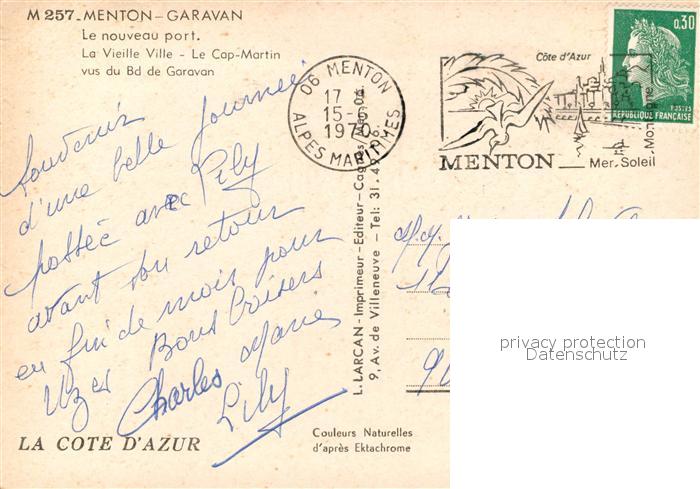 M 257. MENTON-GARAVAN
Le nouveau port.
La Vieille Ville - Le Cap-Martin
vus du Bd de Garavan
06 MENTON
17 H
15-
1970
ALPES MARITIMES
Côte d'Azur
MENTON
Mer. Soleil
Montagne
0,30
POSTES
REPUBLIQUE FRANÇAISE
Souvenir
d'une belle journée
passée avec Lily
avant son retour
en fin de mois pour
Uzès Bons baisers
Charles Marie
Lily
L. LARCAN - Imprimeur - Editeur - Cagnes
9, Av. de Villeneuve - Tel: 31.49
112
privacy protection
Datenschutz
LA COTE D'AZUR
Couleurs Naturelles
d'après Ektachrome